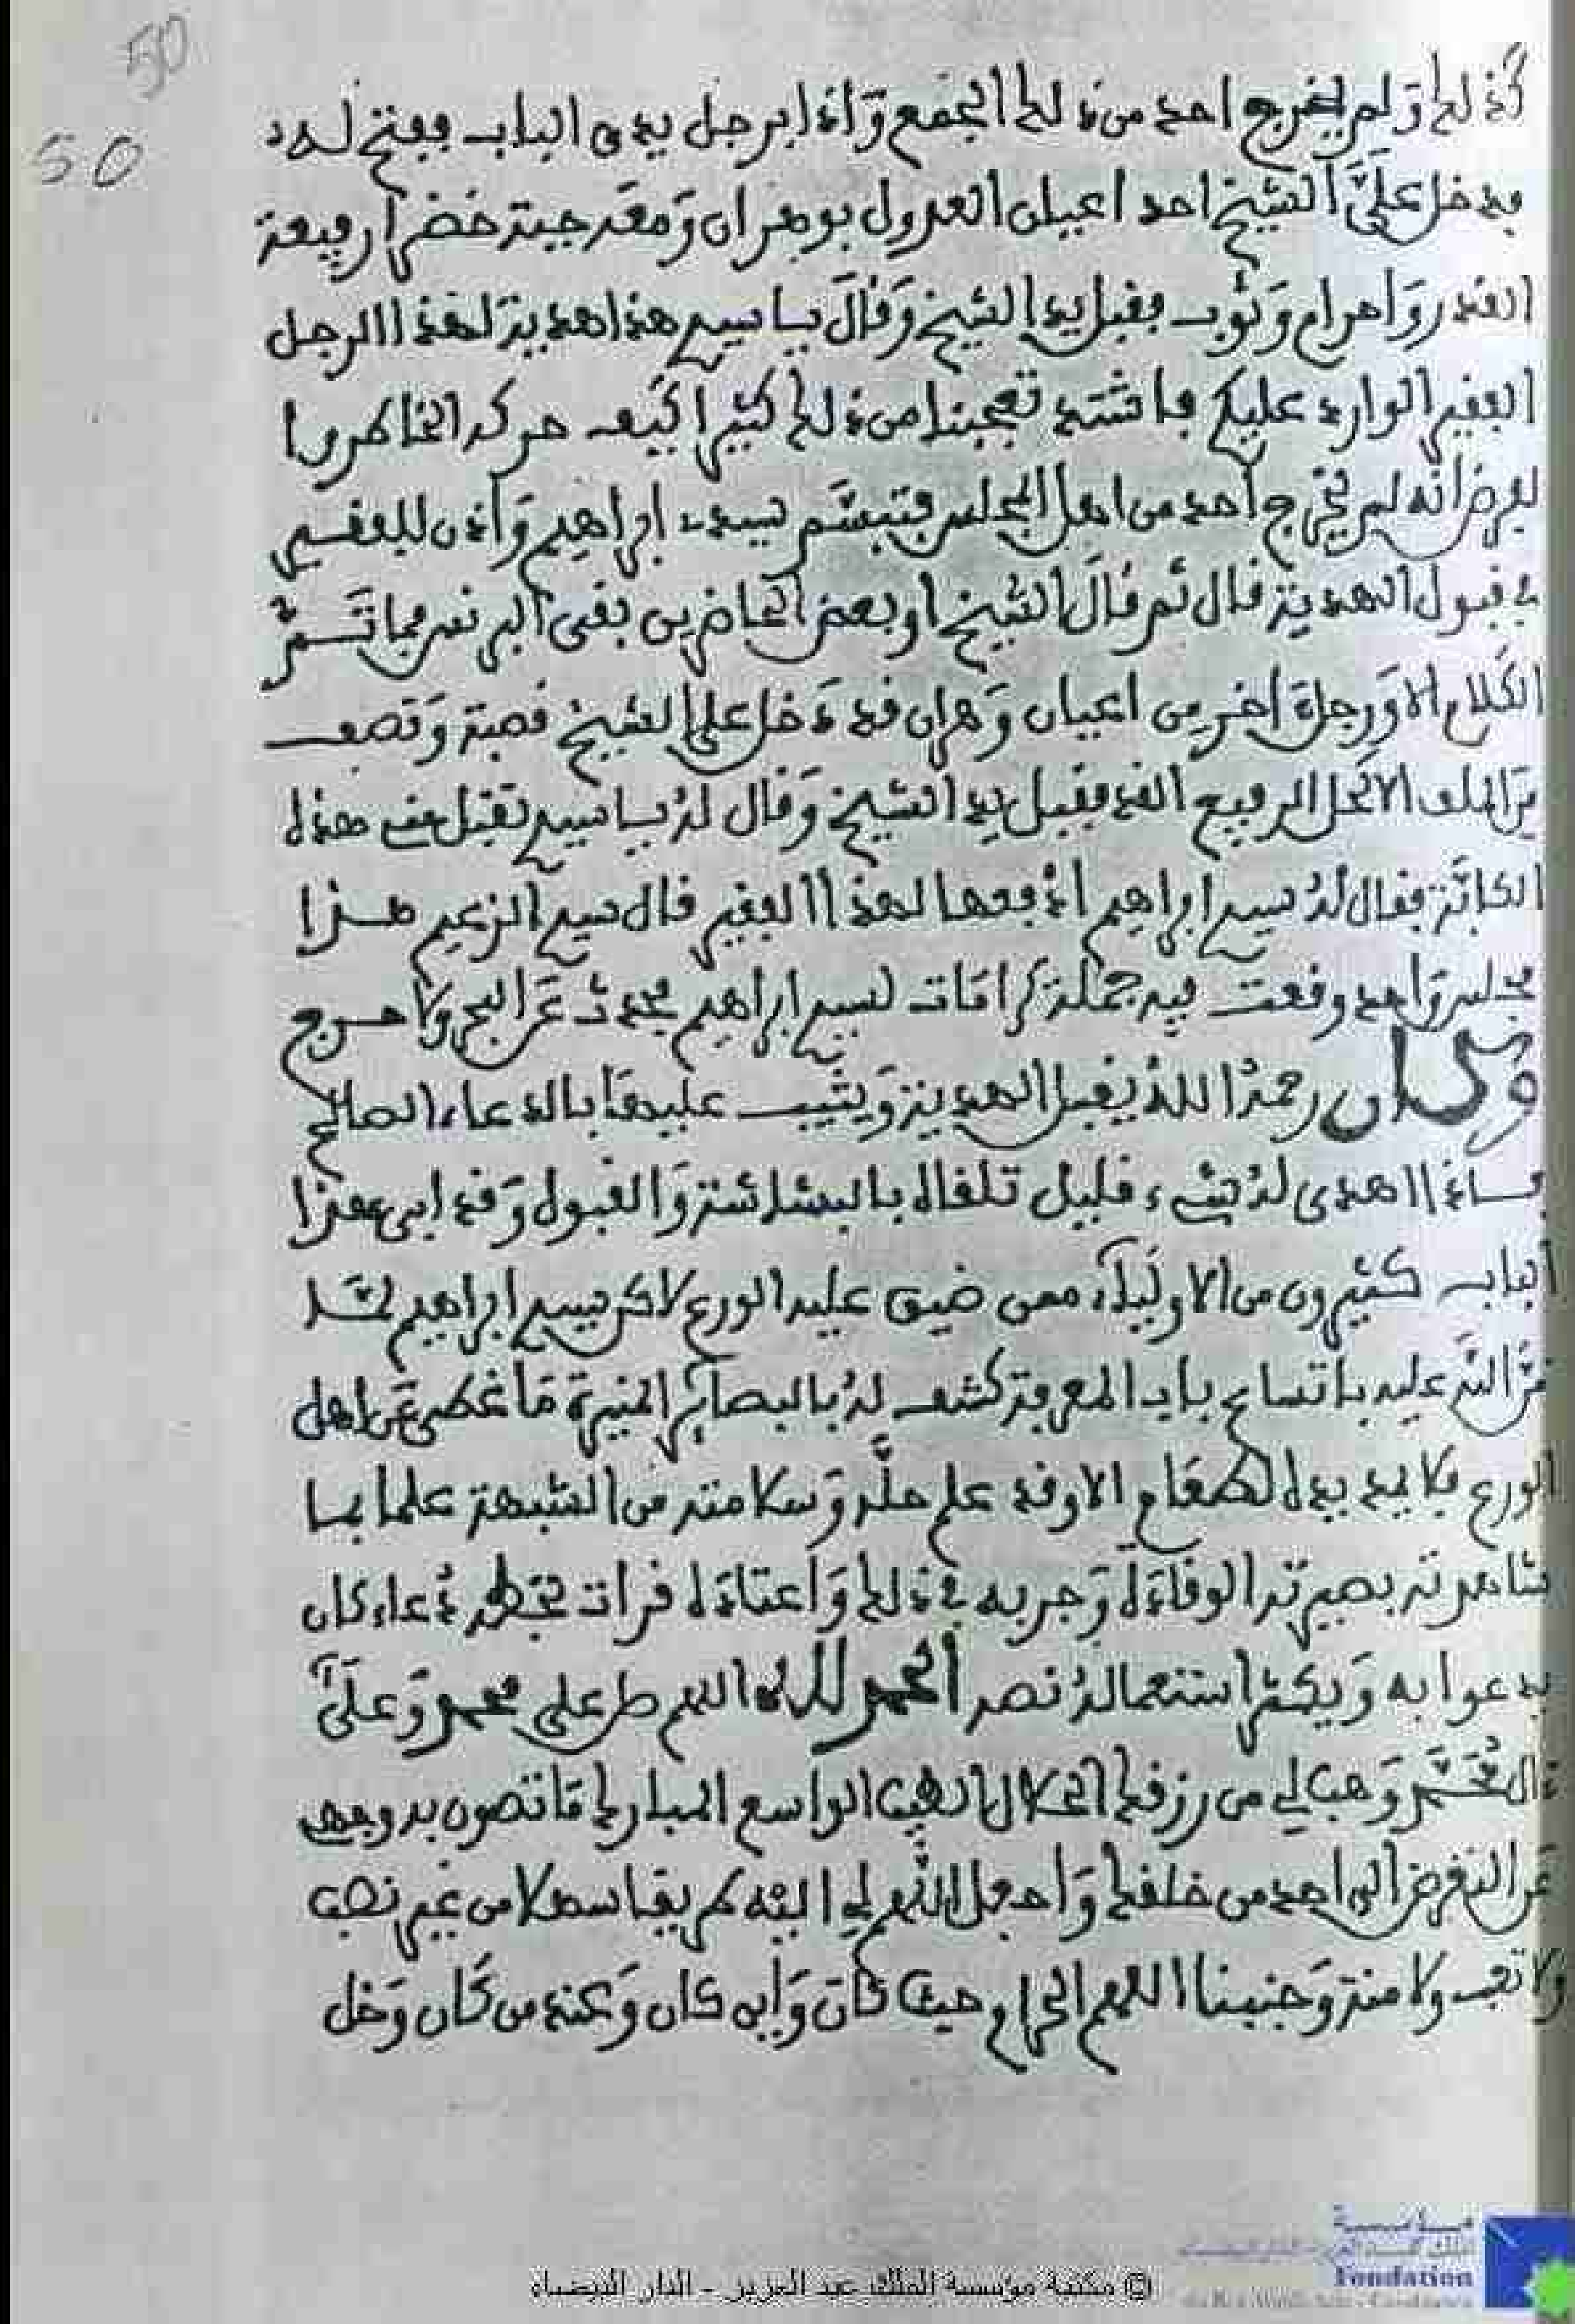 50
50
كذلك ولم يخرج احد من ذلك الجمع وإذا برجل يدق الباب ففتح له
فدخل على الشيخ احد اعيان العدول بوهران ومعه جبة خضرا رفيعة
القدر واحرام وثوب فقبل يد الشيخ وقال يا سيدي هذا هدية لهذا الرجل
الفقير الوارد عليكم فاشتد تعجبنا من ذلك كثيرا كيف حركه الخاطر وا
لفرض انه لم يخرج احد من اهل المجلس فتبسم سيدي ابراهيم وأذن للفقير
في قبول الهدية قال ثم قال الشيخ او بعض الحاضرين بقى البرنس فما تم
الكلام الا ورجل اخر من اعيان وهران قد دخل على الشيخ بقصبة ونصف
من الملف الاكحل الرفيع القد فقبل يد الشيخ وقال له يا سيدي تقبل مني هذه
فقال له سيدي ابراهيم ادفعها لهذا الفقير قال سيدي الزعيم هذا
مجلس واحد وقعت فيه جملة كرامات لسيدي ابراهيم فحدث عن البحر ولا حرج
وكان رحمه الله يقبل الهدية ويثيب عليها بالدعاء الصالح
فاذا اهدى له شيء قليل تلقاه بالبشاشة والقبول وقد ابى هذا
الباب كثيرون من الاولياء ممن ضيق عليه الورع لاكن سيدي ابراهيم لما
من الله عليه باتساع باب المعرفة كشف له بالبصائر المنيرة ما غطي عن اهل
الورع فلا يمد يده لطعام الا وقد علم حله وسلامته من الشبهة علما بما
شاهدته بصيرته الوقادة وجربه في ذلك واعتاده قرات بخطه دعاء كان
يدعوا به ويكثر استعماله نصه الحمد لله اللهم صل على محمد وعلى
ءال محمد وهب لي من رزقك الحلال الطيب الواسع المبارك ما تصون به وجهي
عن التعرض الى احد من خلقك واجعل اللهم لي اليه طريقا سهلا من غير نصب
ولا تعب ولا منة وجنبنا اللهم الحرام حيث كان وأين كان وعند من كان وحل
© مكتبة مؤسسة الملك عبد العزيز - الدار البيضاء
مؤسسة
Fondation